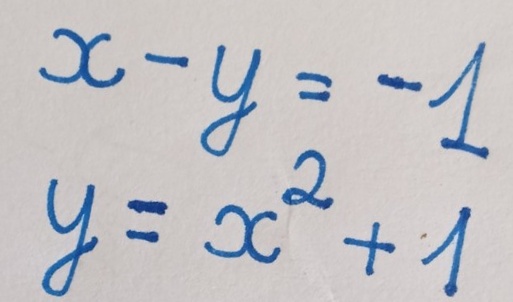 x - y = -1
y = x² + 1